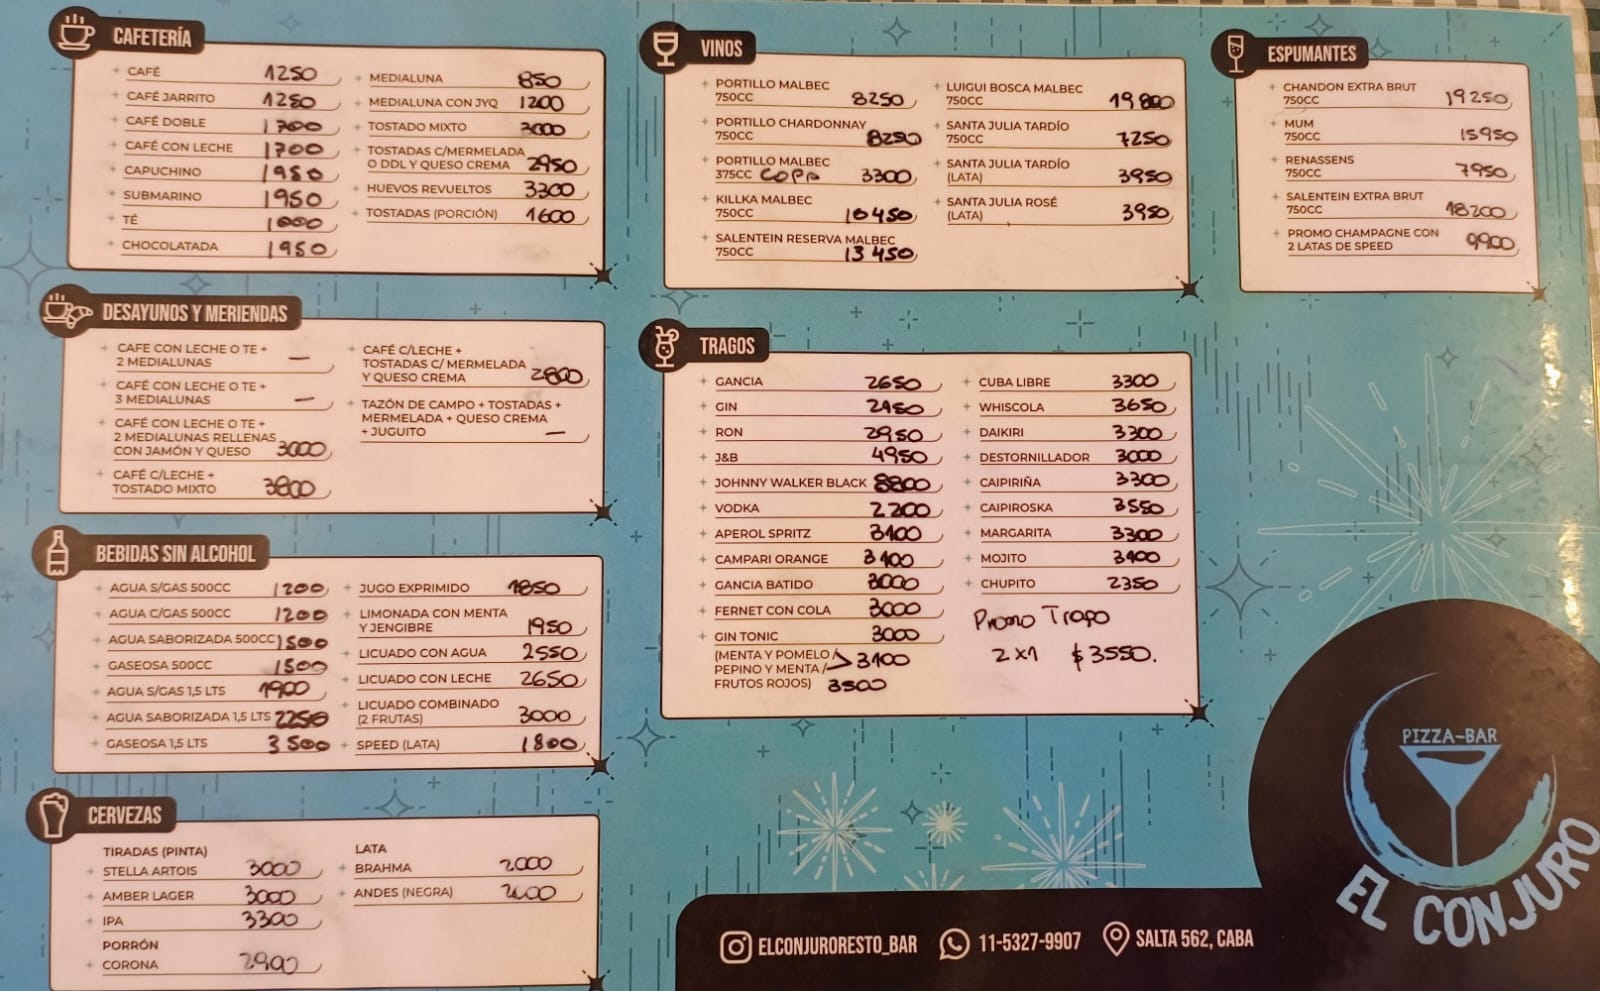 CAFETERÍA
CAFÉ 1250
CAFÉ JARRITO 1250
CAFÉ DOBLE 1700
CAFÉ CON LECHE 1700
CAPUCHINO 1950
SUBMARINO 1950
TÉ
CHOCOLATADA 1950
MEDIALUNA 850
MEDIALUNA CON JYQ 1200
TOSTADO MIXTO 3000
TOSTADAS C/MERMELADA
O DDL Y QUESO CREMA 2950
HUEVOS REVUELTOS 3300
TOSTADAS (PORCIÓN) 1600
DESAYUNOS Y MERIENDAS
CAFE CON LECHE O TE +
2 MEDIALUNAS —
CAFÉ CON LECHE O TE +
3 MEDIALUNAS —
CAFÉ CON LECHE O TE +
2 MEDIALUNAS RELLENAS
CON JAMÓN Y QUESO 3000
CAFÉ C/LECHE +
TOSTADO MIXTO 3800
CAFÉ C/LECHE +
TOSTADAS C/ MERMELADA
Y QUESO CREMA 2800
TAZÓN DE CAMPO + TOSTADAS +
MERMELADA + QUESO CREMA
+ JUGUITO —
BEBIDAS SIN ALCOHOL
AGUA S/GAS 500CC 1200
AGUA C/GAS 500CC 1200
AGUA SABORIZADA 500CC 1500
GASEOSA 500CC 1500
AGUA S/GAS 1,5 LTS 1900
AGUA SABORIZADA 1,5 LTS 2250
GASEOSA 1,5 LTS 3500
JUGO EXPRIMIDO 1850
LIMONADA CON MENTA
Y JENGIBRE 1950
LICUADO CON AGUA 2550
LICUADO CON LECHE 2650
LICUADO COMBINADO
(2 FRUTAS) 3000
SPEED (LATA) 1800
CERVEZAS
TIRADAS (PINTA)
STELLA ARTOIS 3000
AMBER LAGER 3000
IPA 3300
PORRÓN
CORONA 2900
LATA
BRAHMA 2000
ANDES (NEGRA)
VINOS
PORTILLO MALBEC
750CC 8250
PORTILLO CHARDONNAY
750CC 8250
PORTILLO MALBEC
375CC COPA 3300
KILLKA MALBEC
750CC 10450
SALENTEIN RESERVA MALBEC
750CC 13450
LUIGUI BOSCA MALBEC
750CC 19800
SANTA JULIA TARDÍO
750CC 7250
SANTA JULIA TARDÍO
(LATA) 3950
SANTA JULIA ROSÉ
(LATA) 3950
ESPUMANTES
CHANDON EXTRA BRUT
750CC 19250
MUM
750CC 15950
RENASSENS
750CC 7950
SALENTEIN EXTRA BRUT
750CC 18200
PROMO CHAMPAGNE CON
2 LATAS DE SPEED 9900
TRAGOS
GANCIA 2650
GIN 2950
RON 2950
J&B 4950
JOHNNY WALKER BLACK 8800
VODKA 2200
APEROL SPRITZ 3400
CAMPARI ORANGE 3400
GANCIA BATIDO 3000
FERNET CON COLA 3000
GIN TONIC 3000
(MENTA Y POMELO /
PEPINO Y MENTA / > 3400
FRUTOS ROJOS) 3500
CUBA LIBRE 3300
WHISCOLA 3650
DAIKIRI 3300
DESTORNILLADOR 3000
CAIPIRIÑA 3300
CAIPIROSKA 3550
MARGARITA 3300
MOJITO 3400
CHUPITO 2350
Promo Trago
2x1 $3550.
PIZZA-BAR
EL CONJURO
ELCONJURORESTO_BAR 11-5327-9907 SALTA 562, CABA